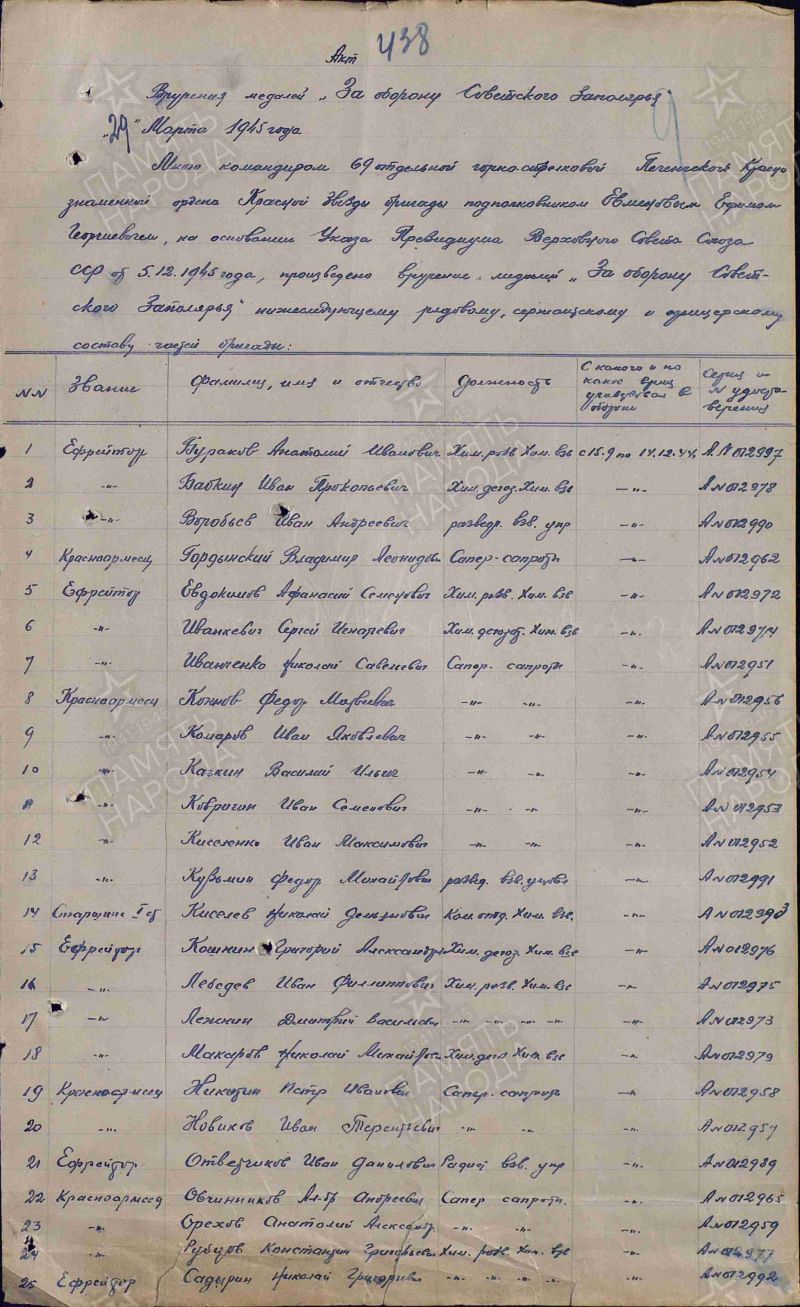 Акт 438
Вручения медалей "За оборону Советского Заполярья"
9
"29" Марта 1945 года
Мною командиром 69 отдельной горно-стрелковой Печенгской Красно
знаменной ордена Красной Звезды бригады подполковником Ефимом
Георгиевичем, на основании Указа Президиума Верховного Совета Союза
ССР от 5.12.1945 года, произведено вручение медалей "За оборону Совет-
ского Заполярья" нижеследующему рядовому, сержантскому и офицерскому
составу частей бригады:
NN Звание Фамилия, имя и отчество Должность С какого и по какое время участвовал в обороне Серия и N удосто-верения
1 Ефрейтор Бураков Анатолий Иванович Хим. разв. Хим. взв с 15.9 по 14.12.44 А N 012997
2 -"- Бабкин Иван Прокопьевич Хим. дегаз. Хим. взв -"- А N 012978
3 -"- Воробьев Иван Андреевич разведч. взв. упр -"- А N 012990
4 Красноармеец Гордынский Владимир Леонидов Сапер-сапроты -"- А N 012962
5 Ефрейтор Евдокимов Афанасий Семенович Хим. разв. Хим. взв -"- А N 012972
6 -"- Иванкевич Сергей Игнатьевич Хим. дегаз. Хим. взв -"- А N 012974
7 -"- Иванченко Николай Савельевич Сапер. сапроты -"- А N 012951
8 Красноармеец Коннов Федор Матвеевич -"- -"- -"- А N 012956
9 -"- Комаров Иван Яковлевич -"- -"- -"- А N 012955
10 -"- Качкин Василий Ильич -"- -"- -"- А N 012954
11 -"- Ковригин Иван Семенович -"- -"- -"- А N 012953
12 -"- Киселенко Иван Максимович -"- -"- -"- А N 012952
13 -"- Кузьмин Федор Михайлович развед. взв. -"- А N 012991
14 Старшина Киселев Николай Ком. отд. Хим. взв. -"- А N 012993
15 Ефрейтор Кошкин Григорий Александр Хим. дегаз. Хим. взв -"- А N 012976
16 -"- Лебедев Иван Филиппович Хим. разв. Хим. взв -"- А N 012975
17 -"- Лежнин Дмитрий Васильев -"- -"- -"- -"- -"- А N 012973
18 -"- Макаров Николай Михайлов Хим. дегаз Хим. взв -"- А N 012979
19 Красноармеец Никитин Петр Иванович Сапер. сапроты -"- А N 012958
20 -"- Новиков Иван Терентьевич -"- -"- -"- А N 012957
21 Ефрейтор Ответчиков Иван Данилович Радист взв. упр -"- А N 012989
22 Красноармеец Овчинников Ал-др Андреевич Сапер сапроты. -"- А N 012965
23 -"- Орехов Анатолий Александр -"- -"- -"- А N 012959
24 -"- Рубцов Константин Григорьевич Хим. разв. Хим. взв -"- А N 012977
25 Ефрейтор Садырин Николай Григорьевич -"- -"- -"- -"- -"- А N 012992
ПАМЯТЬ НАРОДА
1941-1945